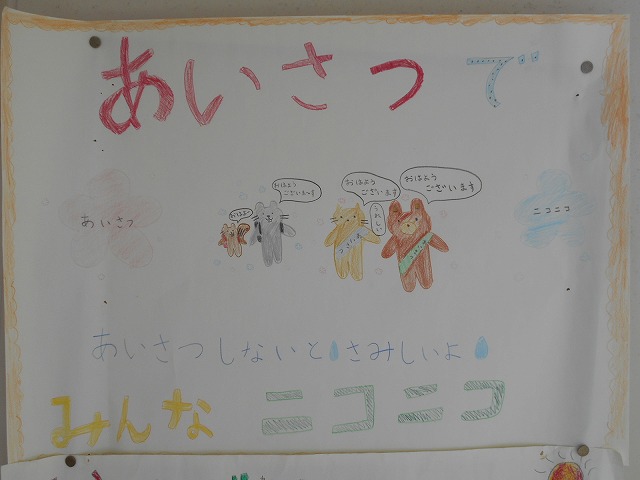 あいさつで
あいさつ
おはよう
おはよう
ございま～す
おはよう
ございます
うれしい
おはよう
ございます
ニコニコ
あいさつしないとさみしいよ
みんなニコニコ